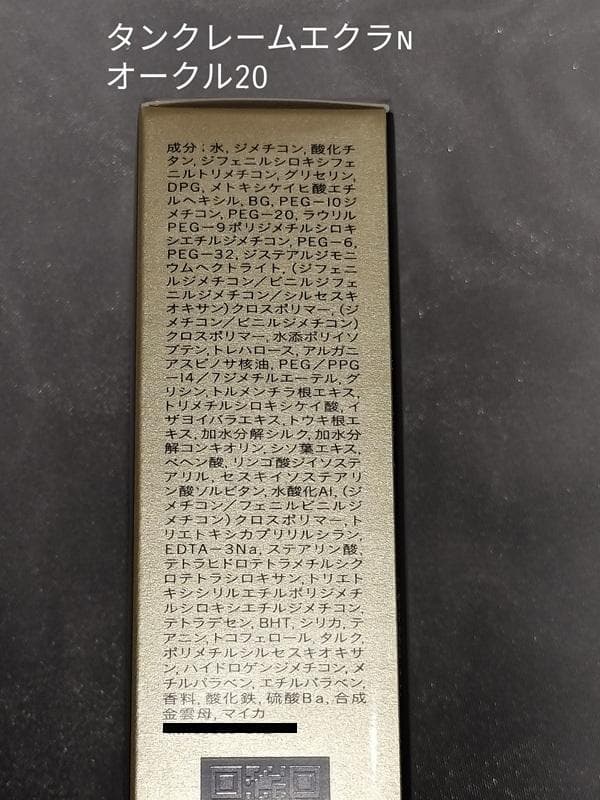 タンクレームエクラN
オークル20
成分:水, ジメチコン, 酸化チ
タン, ジフェニルシロキシフェ
ニルトリメチコン, グリセリン,
DPG, メトキシケイヒ酸エチ
ルヘキシル, BG, PEG-10ジ
メチコン, PEG-20, ラウリル
PEG-9ポリジメチルシロキ
シエチルジメチコン, PEG-6,
PEG-32, ジステアルジモニ
ウムヘクトライト, (ジフェニ
ルジメチコン/ビニルジフェ
ニルジメチコン/シルセスキ
オキサン)クロスポリマー, (ジ
メチコン/ビニルジメチコン)
クロスポリマー, 水添ポリイソ
ブテン, トレハロース, アルガニ
アスピノサ核油, PEG/PPG
-14/7ジメチルエーテル, グ
リシン, トルメンチラ根エキス,
トリメチルシロキシケイ酸, イ
ザヨイバラエキス, トウキ根エ
キス, 加水分解シルク, 加水分
解コンキオリン, シソ葉エキス,
ベヘン酸, リンゴ酸ジイソステ
アリル, セスキイソステアリ
ン酸ソルビタン, 水酸化Al, (ジ
メチコン/フェニルビニルジ
メチコン)クロスポリマー, ト
リエトキシカプリリルシラン,
EDTA-3Na, ステアリン酸,
テトラヒドロテトラメチルシク
ロテトラシロキサン, トリエト
キシシリルエチルポリジメチ
ルシロキシエチルジメチコン,
テトラデセン, BHT, シリカ, テ
アニン, トコフェロール, タルク,
ポリメチルシルセスキオキサ
ン, ハイドロゲンジメチコン, メ
チルパラベン, エチルパラベン,
香料, 酸化鉄, 硫酸Ba, 合成
金雲母, マイカ